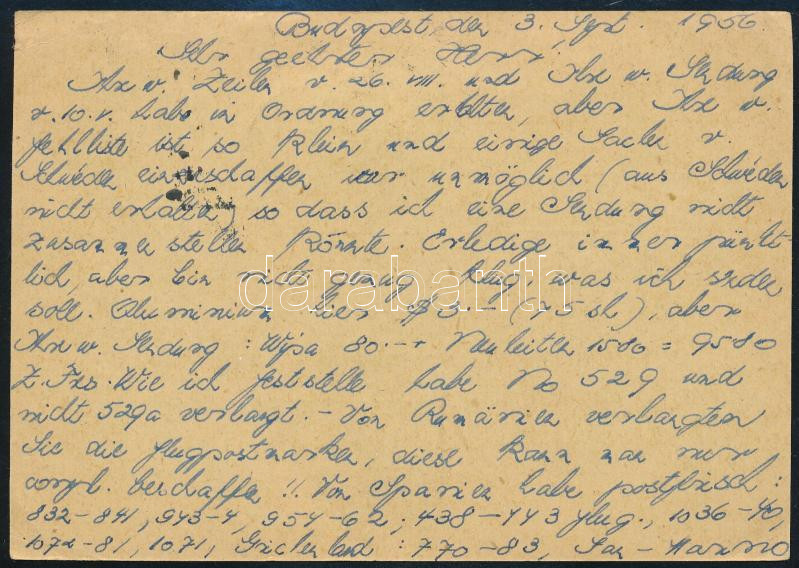 Budapest, den 3. Sept. 1956
Sehr geehrter Herr,
Ihr w. Zeilen v. 26. VIII. und Ihr w. Sendung
v. 10. v. habe in Ordnung erhalten, aber Ihr w.
Fehlliste ist so klein und einige Sachen v.
Schweden war unmöglich (aus Schweden
nicht erhalten) so dass ich eine Sendung nicht
zusammenstellen könnte. Erledige immer pünkt-
lich, aber bin nicht genug klug, was ich senden
soll. Aluminium hier $ 3.- (75 sh), aber
Ihr w. Sendung: Wipa 80.-+ Neuheiten 1580 = 9580
Z. Frs. Wie ich feststelle habe No 529 und
nicht 529a verlangt. - Von Rumänien verlangten
Sie die Flugpostmarken, diese kann man nur
compl. beschaffen!! Von Spanien habe postfrisch:
832-841, 943-4, 954-62, 438-443 flug., 1036-40,
1072-81, 1071, Griechenland: 770-83, San-Marino
darabanth